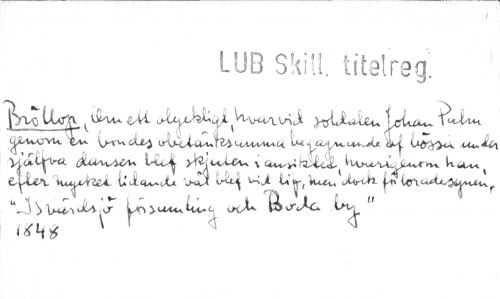 LUB Skill. titelreg.
Bröllop, Om ett olyckligt, hvarvid soldaten Johan Palm
genom en bondes obetänksamma begagnande af bössa under
själfva dansen blef skjuten i ansiktet, hvarigenom han,
efter mycket lidande väl blef vid lif, men dock förlorade synen.
"I Svärdsjö församling och Boda by"
1848